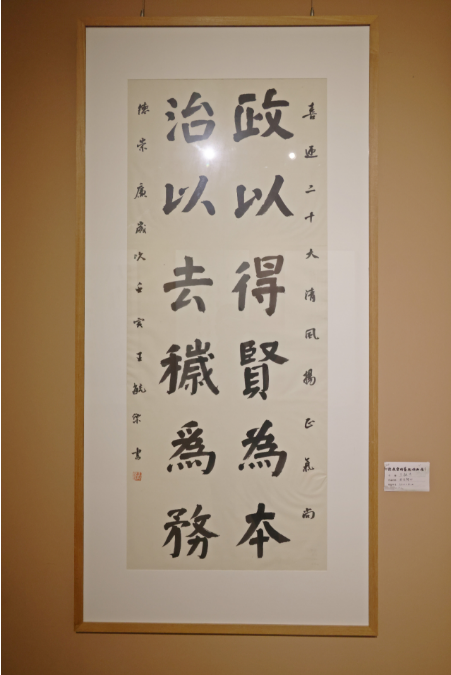 喜迎二十大清風揚正氣尚
政以得賢為本
治以去穢為務
德崇廉歲次壬寅王毓宗書